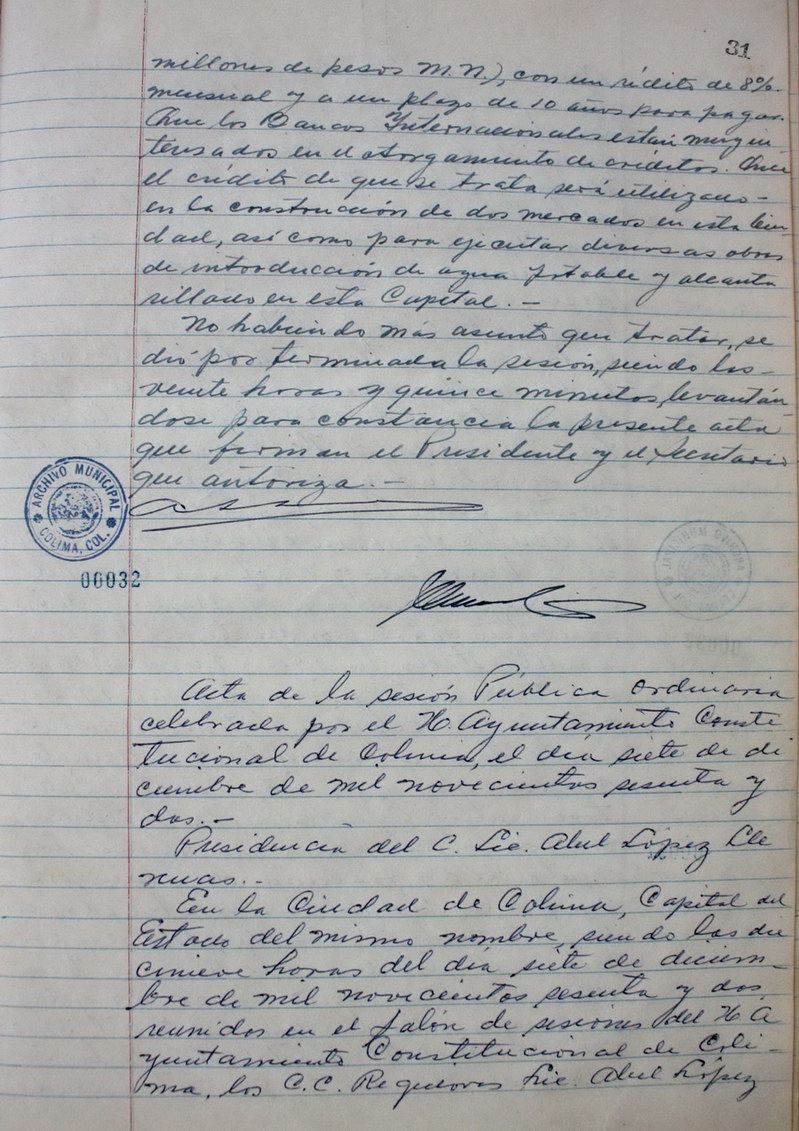 31
millones de pesos M.N.), con un rédito de 8%.
mensual y a un plazo de 10 años para pagar.
Que los Bancos Internacionales están muy in-
teresados en el otorgamiento de créditos. Que
el crédito de que se trata será utilizado-
en la construcción de dos mercados en esta Ciu-
dad, así como para ejecutar diversas obras
de introducción de agua potable y alcanta
rillado en esta Capital.-
No habiendo más asunto que tratar, se
dió por terminada la sesión, siendo las-
veinte horas y quince minutos, levantán
dose para constancia la presente acta
que firman el Presidente y el Secretario
que autoriza.-
ARCHIVO MUNICIPAL
COLIMA, COL.
00032
Acta de la sesión Pública Ordinaria
celebrada por el H. Ayuntamiento Consti
tucional de Colima, el día siete de di
ciembre de mil novecientos sesenta y
dos.-
Presidencia del C. Lic. Abel López Lle
renas.-
En la Ciudad de Colima, Capital del
Estado del mismo nombre, siendo las die
cinueve horas del día siete de diciem-
bre de mil novecientos sesenta y dos,
reunidos en el Salón de sesiones del H. A
yuntamiento Constitucional de Coli-
ma, los C.C. Regidores Lic. Abel López